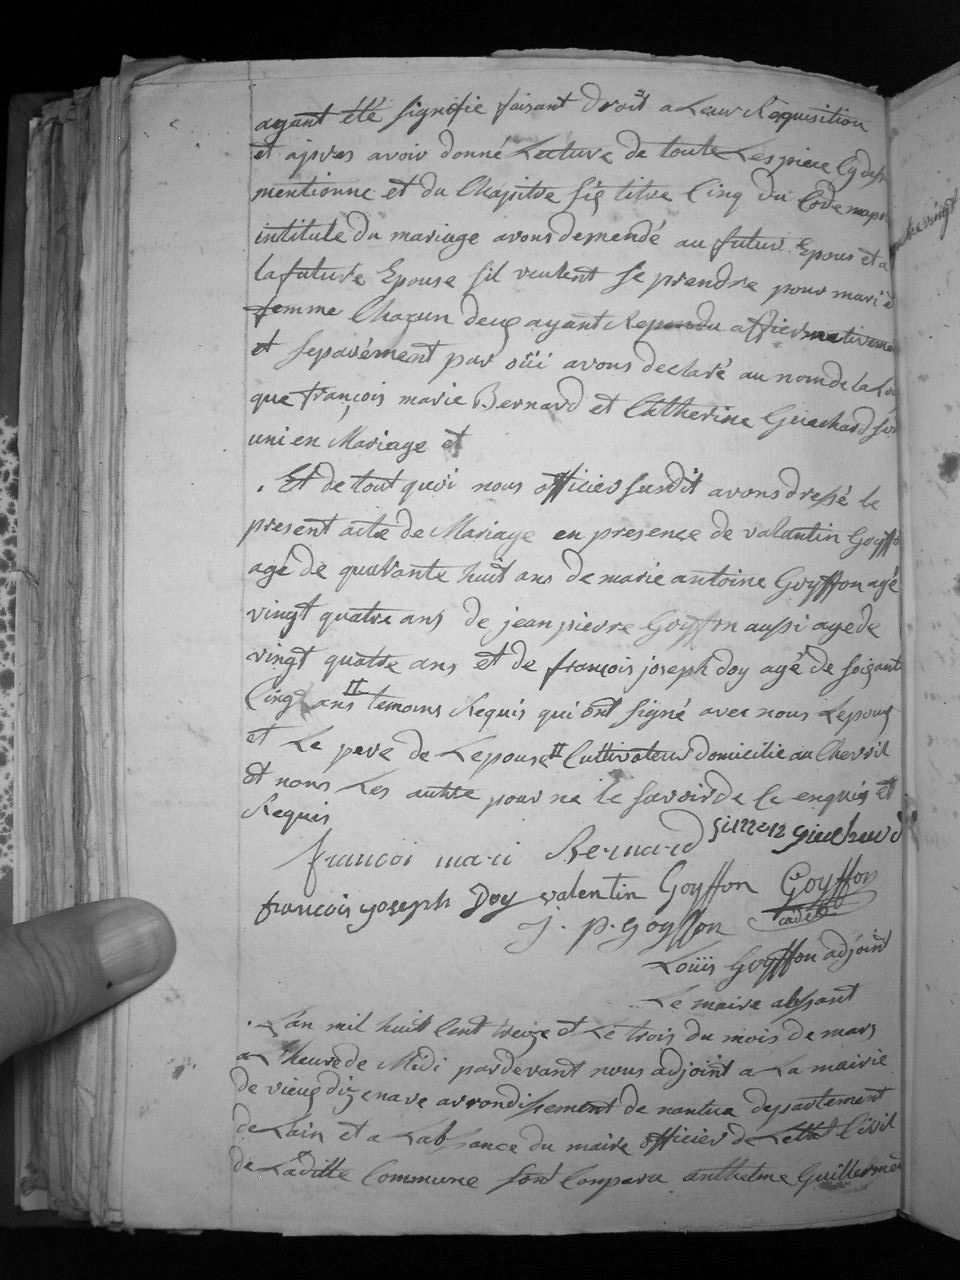 ayant été signifie faisant droit a Leur Requisition
et aprres avoir donné Lecture de toute Les piece Cy dess
mentionne et du Chapitre six titre Cinq du Code napo
intitule du mariage avons demendé au futur Epous et a
la future Epouse sil veulent se prendre pour mari et
femme Chacun deux ayant Repondu affirmativeme
et separément par oüi avons declaré au nom de la Loi
que françois marie Bernard et Catherine Guichard son
uni en Mariage et
. Et de tout quoi nous officier susdit avons dressé le
present acte de Mariage en presence de valantin Goyffo
age de quarante huit ans de marie antoine Goyffon agé
vingt quatre ans de jean pierre Goyffon aussi age de
vingt quatre ans et de françois joseph Doy agé de soixant
Cinq ans temoins Requis qui ont signé avec nous Lepoux
et Le pere de Lepouse Cultivateur domicilié au Chevril
et nons Les autre pour ne le savoir de ce enquis et
Requis
francoi mari Bernard Simon Guichard
francois joseph Doy valentin Goyffon Goyffon
cadet
J. p. Goyffon
Loüis Goyffon adjoint
Le maire abssant
. L'an mil huit Cent treize et Le trois du mois de mars
a L'heure de Midi pardevant nous adjoint a La mairie
de vieux dizenave arrondissement de nantua departement
de Lain et a Labssance du maire officier de Letat Civil
de Laditte Commune sont Compara anthelme Guillermet